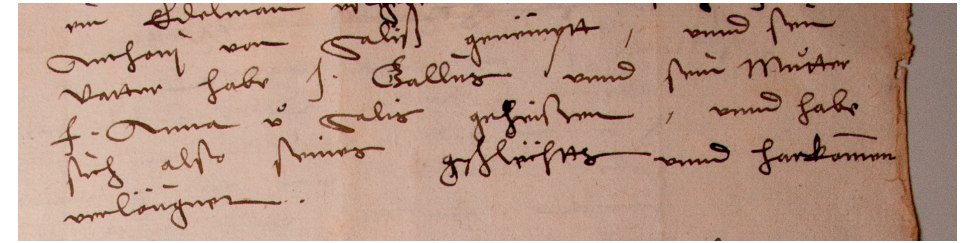 ein Edelman
Anthonj von Saliß genempt, vnnd sein
Vatter habe J. Gallus vnnd sein Můtter
f. Anna v̊ Salis geheissen, vnnd habe
sich also seines gschlächts vnnd harkom̄en
verlöugnet.